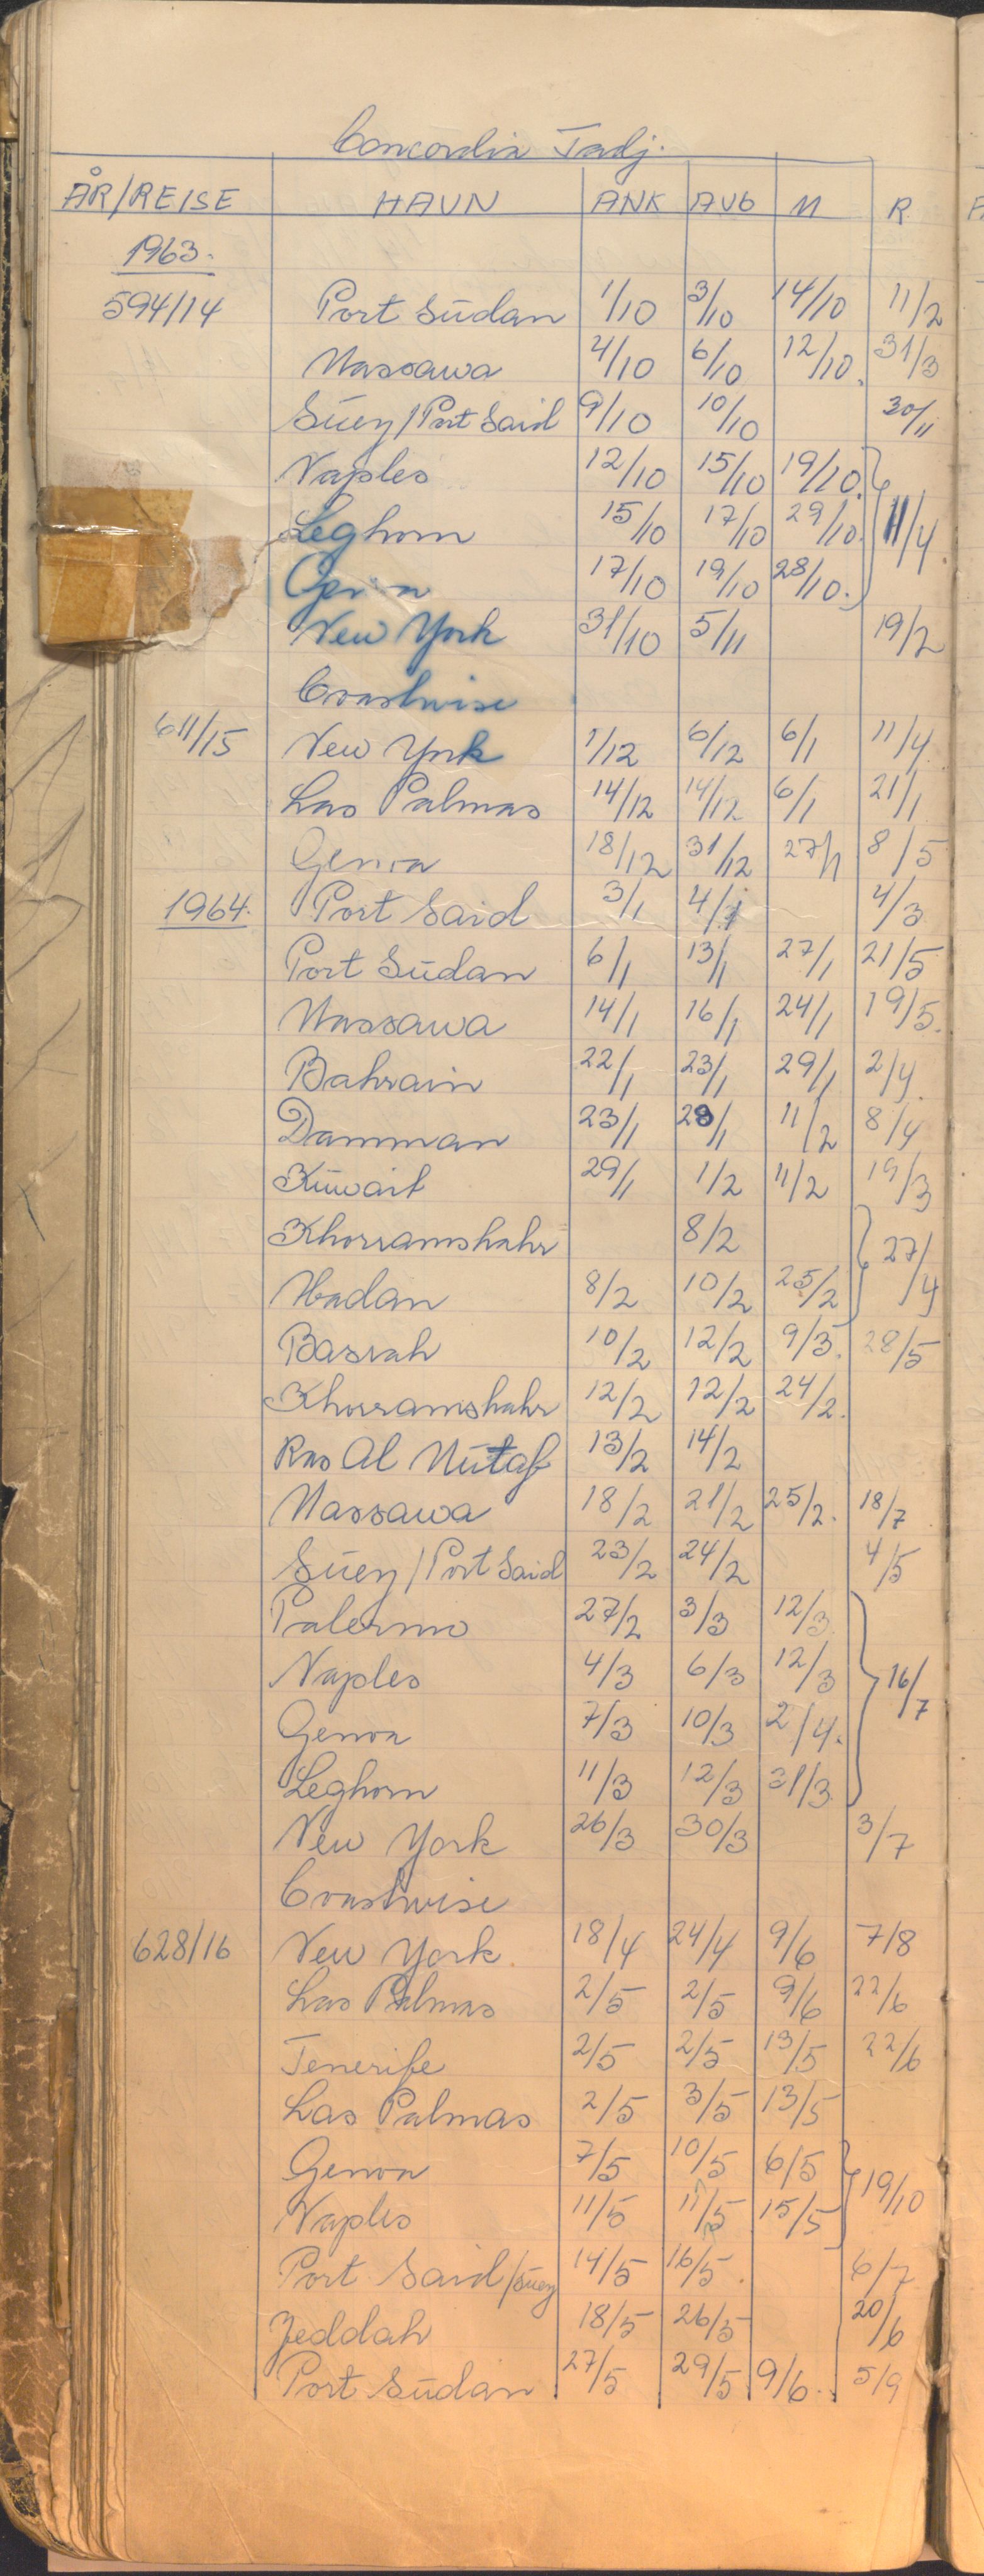 Concordia Tadj.
ÅR/REISE HAVN ANK AVG M R
1963.
594/14 Port Südan 1/10 3/10 14/10 11/2
Massawa 4/10 6/10 12/10. 31/3
Süez/Port Said 9/10 10/10 30/11
Naples 12/10 15/10 19/10.
Leghorn 15/10 17/10 29/10. 11/4.
Genoa 17/10 19/10 28/10.
New York 31/10 5/11 19/2
Coastwise
611/15 New York 1/12 6/12 6/1 11/4
Las Palmas 14/12 14/12 6/1 21/1
Genoa 18/12 31/12 27/1 8/5
1964. Port Said 3/1 4/1 4/3
Port Südan 6/1 13/1 27/1 21/5
Massawa 14/1 16/1 24/1 19/5.
Bahrain 22/1 23/1 29/1 2/4.
Damman 23/1 28/1 11/2 8/4
Küwait 29/1 1/2 11/2 19/3
Khorramshahr 8/2 27/4
Abadan 8/2 10/2 25/2
Basrah 10/2 12/2 9/3. 28/5
Khorramshahr 12/2 12/2 24/2.
Ras Al Mütaf 13/2 14/2
Massawa 18/2 21/2 25/2. 18/7
Süez/Port Said 23/2 24/2 4/5
Palermo 27/2 3/3 12/3
Naples 4/3 6/3 12/3 16/7
Genoa 7/3 10/3 2/4.
Leghorn 11/3 12/3 31/3
New York 26/3 30/3 3/7
Coastwise
628/16 New York. 18/4 24/4 9/6 7/8
Las Palmas 2/5 2/5 9/6 22/6
Tenerife 2/5 2/5 13/5 22/6
Las Palmas 2/5 3/5 13/5
Genoa 7/5 10/5 6/5 19/10
Naples 11/5 11/5 15/5
Port Said/Süez 14/5 16/5. 6/7
Jeddah 18/5 26/5 20/6
Port Südan 27/5 29/5 9/6. 5/9